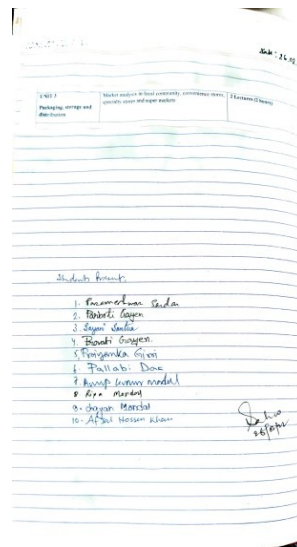 UNIT 2
Packaging, storage and distribution
Market analysis in local community, convenience stores, specialty stores and super markets
2 Lectures (2 hours)
Students Present
1. Parameshwar Sardar
2. Parboti Gayen
3. Sayani Santra
4. Provati Gayen.
5. Priyanka Giri
6. Pallabi Das
7. mondal
8 Riya Mondal
9. Sayan Mondal
10. Afjal Hossen Khan